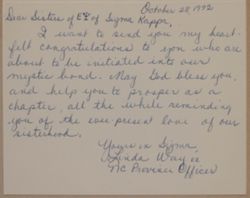 October 28, 1992
Dear Sisters of ΕΨ of Sigma Kappa,
I want to send you my heart-
felt congratulations to you who are
about to be initiated into our
mystic bond. May God bless you,
and help you to prosper as a
chapter, all the while reminding
you of the ever present love of our
sisterhood.
Yours in Sigma,
Linda
NC Province Officer